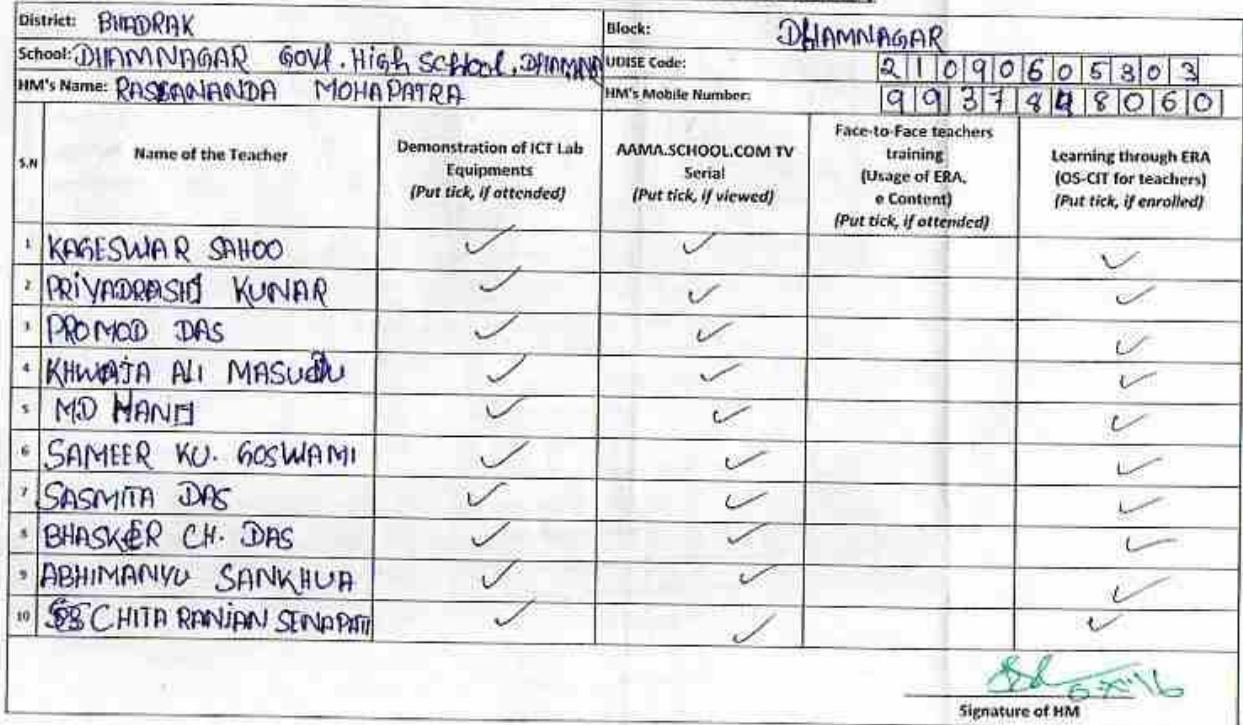 District: BHADRAK Block: DHAMNAGAR
School: DHAMNAGAR GOVt. High School, DHAMNA UDISE Code: 21090605303
HM's Name: RASEANANDA MOHAPATRA HM's Mobile Number: 9937848060
S.N Name of the Teacher Demonstration of ICT Lab Equipments (Put tick, if attended) AAMA.SCHOOL.COM TV Serial (Put tick, if viewed) Face-to-Face teachers training (Usage of ERA, e Content) (Put tick, if attended) Learning through ERA (OS-CIT for teachers) (Put tick, if enrolled)
1 KAGESWAR SAHOO ✓ ✓ ✓
2 PRIYADRASHI KUNAR ✓ ✓ ✓
3 PROMOD DAS ✓ ✓ ✓
4 KHWAJA ALI ✓ ✓ ✓
5 MD ✓ ✓ ✓
6 SAMEER KU. GOSWAMI ✓ ✓ ✓
7 SASMITA DAS ✓ ✓ ✓
8 BHASKER CH. DAS ✓ ✓ ✓
9 ABHIMANYU SANKHUA ✓ ✓ ✓
10 CHITA RANJAN SENAPATI ✓ ✓ ✓
Signature of HM